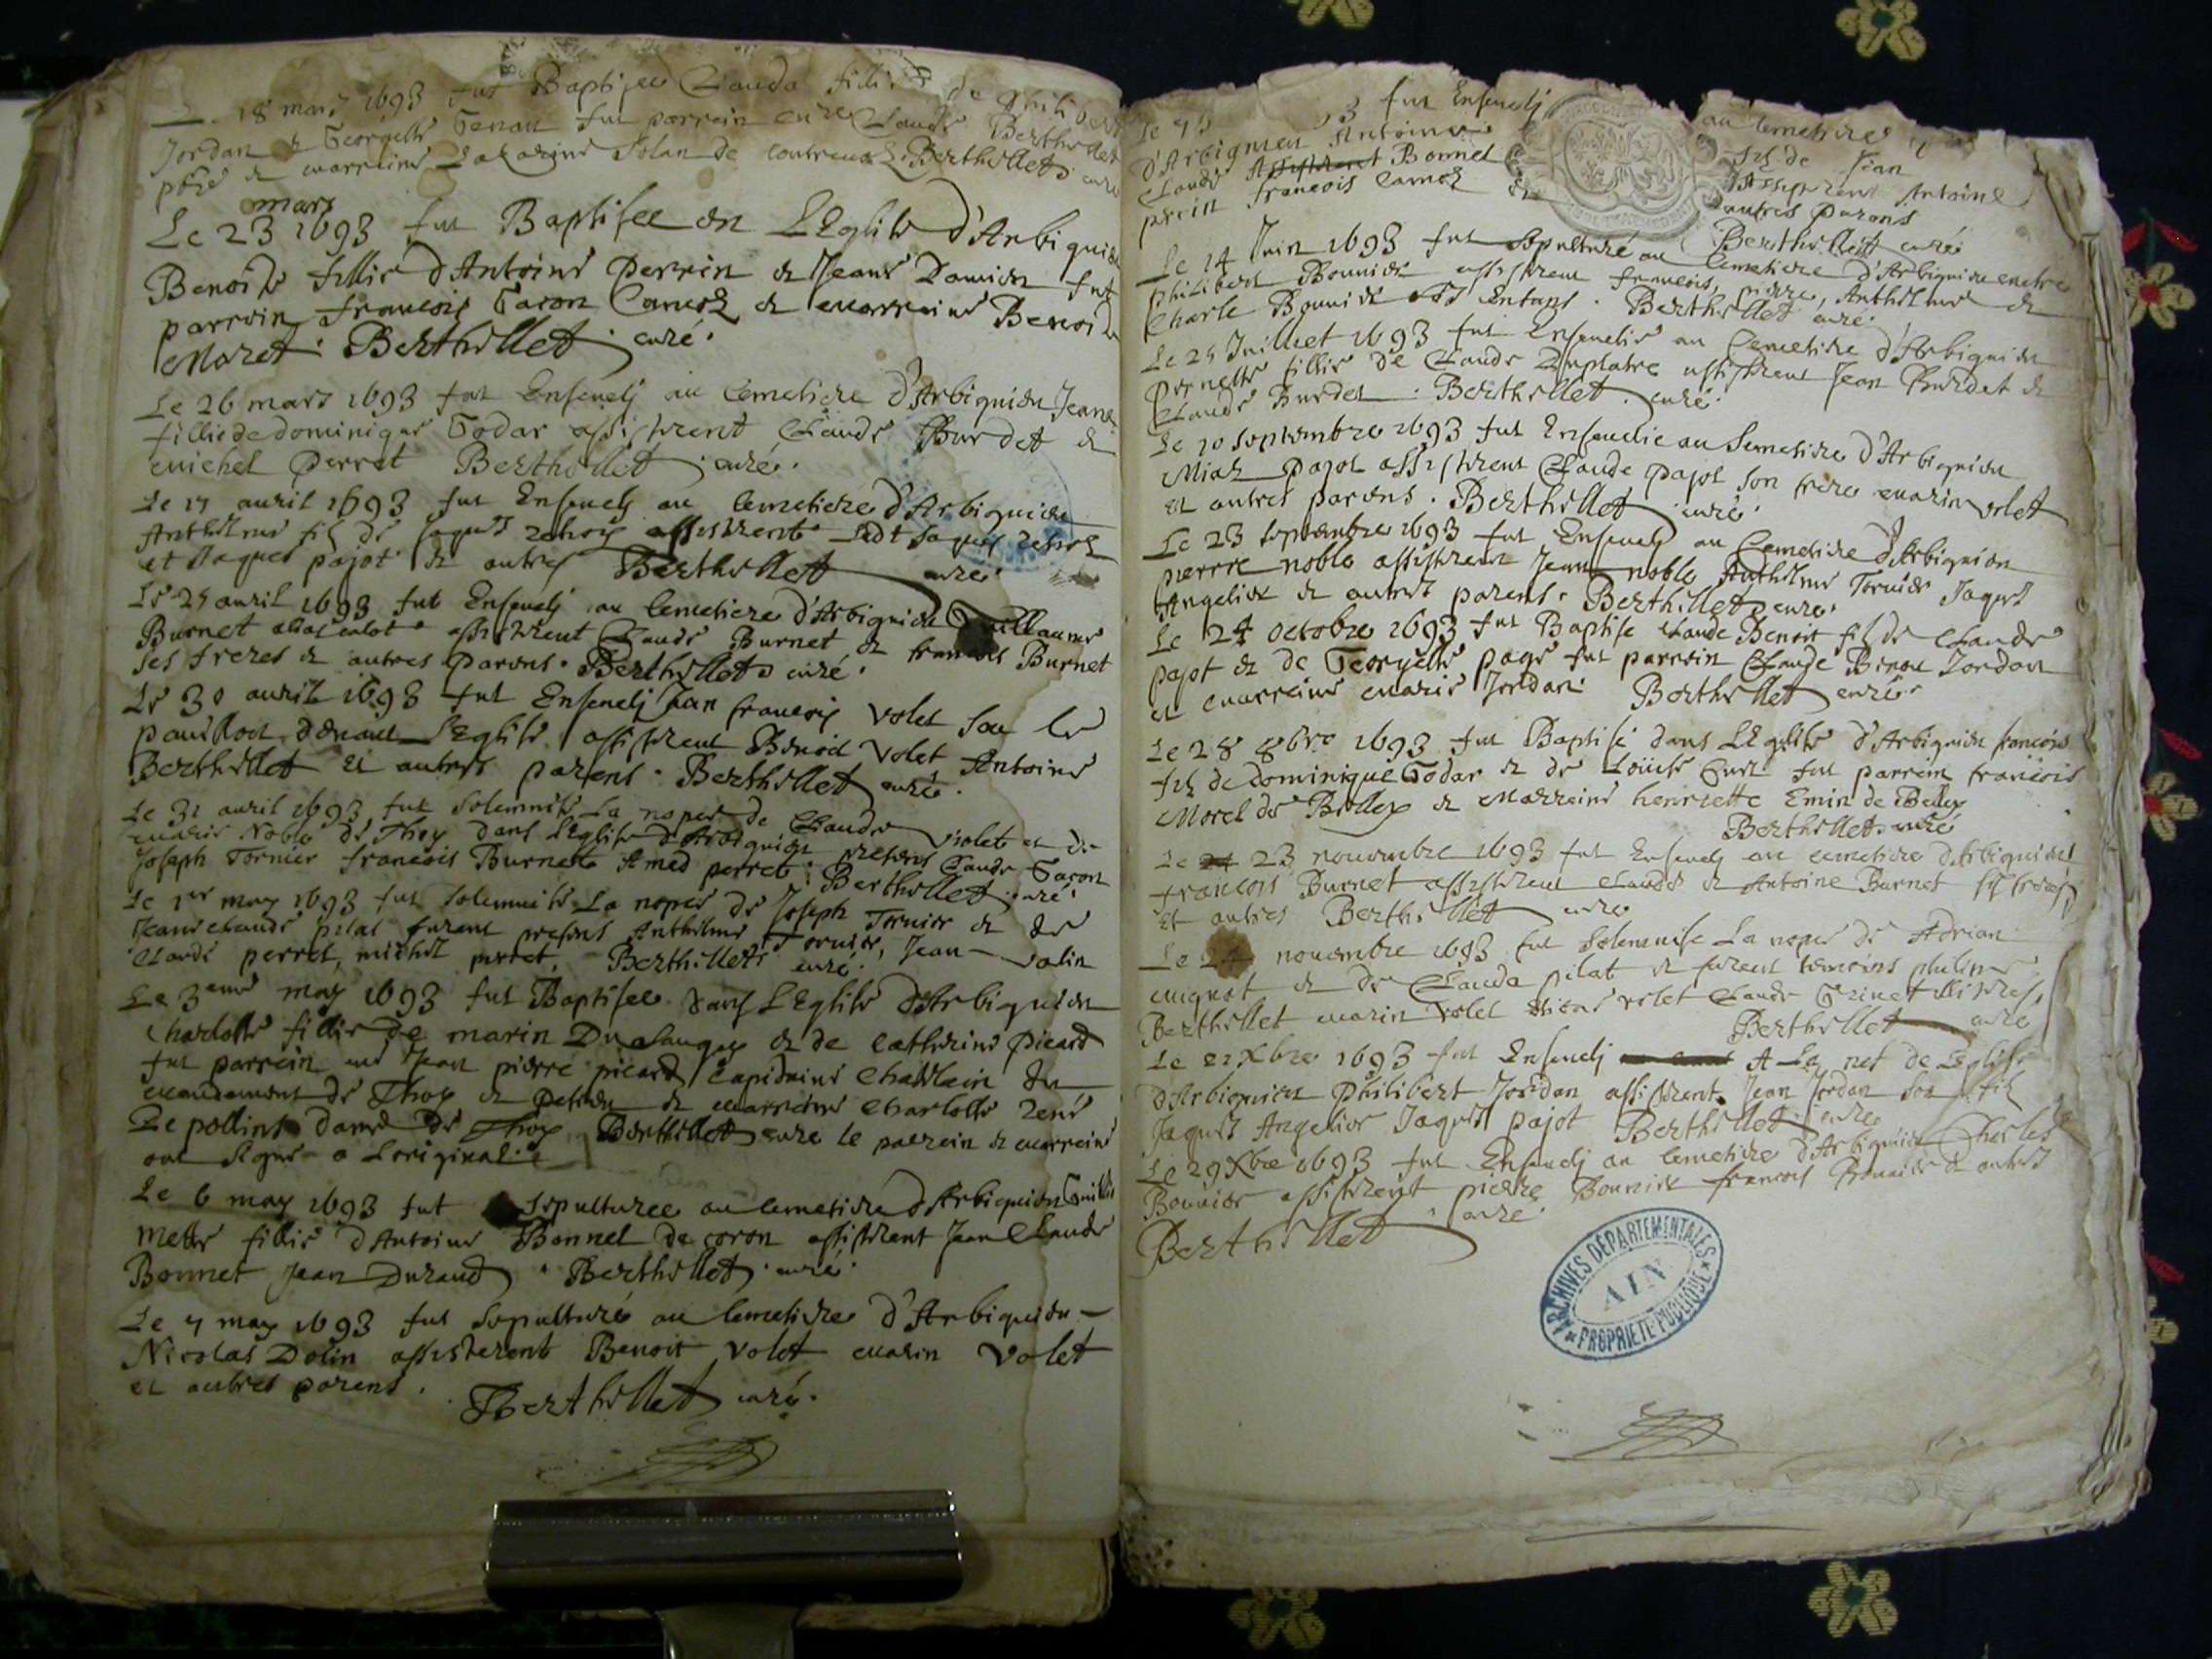 18 mars 1693 fut Baptisee Clauda fillie de Philibert
Jordan & Georgette Genan fut parrein enre Claude Berthillet
pbre & marreine Solan de contreuoz. Berthillet curé
mars
Le 23 1693 fut Baptisee en L'Eglise d'Arbignieu
Benoite fillie d'Antoine Perrin & Jeane Damien fut
parrein francois Gacon & marreine Benoite
Moret. Berthillet curé.
Le 26 mars 1693 fut Enseuely au Cemetiere d'Arbignieu Jeane
fillie de dominique Godar assisterent Claude Burdet &
michel perret Berthillet curé.
Le 17 auril 1693 fut Enseuely au Cemetiere d'Arbignieu
Anthelme fils de Jaques assisterent Ledt Jaques
et Jaques pajot & autres Berthillet curé
Le 25 auril 1693 fut Enseuely au Cemetiere d'Arbignieu Guillaume
Burnet alias assisterent Claude Burnet & francois Burnet
ses freres & autres parens. Berthillet curé.
Le 30 auril 1693 fut Enseuely Jean francois Volet sou le
pauillon deuant L'Eglise assisterent Benoit Volet Antoine
Berthillet et autres parens. Berthillet curé.
Le 31 auril 1693 fut solemnise La nopce de Claude violet et de
marie Noble de Thoy dans L'Eglise d'Arbignieu presens Claude Gacon
Joseph Tornier francois Burnet Amed perret. Berthillet curé.
Le 1er may 1693 fut solemnise La nopce de Joseph Tornier & de
Jeane claude pilat furent presens Anthelme Tornier, Jean volin
Claude perret, michel perret, Berthillet curé.
Le 3eme may 1693 fut Baptisee dans L'Eglise d'Arbignieu
Charlotte fillie de marin Du & de catherine Picard
fut parrein me Jean pierre picard Capitaine Chatelain du
mandement de Thoy & & marreine Charlotte René
De pollins dame de Thoy Berthillet curé le parrein & marreine
ont signe a Loriginal
Le 6 may 1693 fut sepulturee au Cemetiere d'Arbignieu Guille
mette fillie d'Antoine Bonnet de coron assisterent Jean Claude
Bonnet Jean Durand. Berthillet curé.
Le 7 may 1693 fut sepulturé au Cemetiere d'Arbignieu
Nicolas Dolin assisterent Benoit Volet marin Volet
et autres parens.
Berthillet curé.
Le 3 fut Enseuely au Cemetiere
d'Arbignieu Antoine fils de Jean
Claude Bonnet Assisterent Antoine
prein francois & autres parens
Berthillet curé
Le 14 Juin 1693 fut sepulturé au Cemetiere d'Arbignieu
philibert Bonnier assisterent francois, pierre, Anthelme &
Charle Bonnier ses Enfans. Berthillet curé.
Le 25 Juillet 1693 fut Enseuelie au Cemetiere d'Arbignieu
Pernette fillie de Claude Duplatre assisterent Jean Burdet &
Claude Burdet. Berthillet curé.
Le 10 septembre 1693 fut Enseuelie au Semetiere d'Arbignieu
Miaz pajot assisterent Claude pajot son frere marin volet
et autres parens. Berthillet curé.
Le 23 septembre 1693 fut Enseuely au Cemetiere d'Arbignieu
pierre noble assisterent Jean noble Anthelme Tornier Jaques
Angelier & autres parens. Berthillet curé.
Le 24 octobre 1693 fut Baptise Claude Benoit fils de Claude
pajot & de Georgette page fut parrein Claude Benoit Jordan
et marreine marie Jordan Berthillet curé.
Le 28 8bre 1693 fut Baptisé dans L'Eglise d'Arbignieu francois
fils de dominique Godar & de Loüise fut parrein francois
Morel de Belley & Marreine henriette Emin de Belley
Berthillet curé
Le 23 nouembre 1693 fut Enseuely au cemetiere d'Arbignieu
francois Burnet assisterent Claude & Antoine Burnet ses freres
et autres Berthillet curé
Le nouembre 1693 fut solemnise La nopce de Adrian
mignot & de Clauda pilat & furent temoins
Berthillet marin Volet volet Claude
Berthillet curé
Le Xbre 1693 fut Enseuely A La nef de L'Eglise
d'Arbignieu Philibert Jordan assisterent Jean Jordan son fils
Jaques Angelier Jaques pajot Berthillet curé
Le 29 Xbre 1693 fut Enseuely au Cemetiere d'Arbignieu Charles
Bonnier assisterent pierre Bonnier francois Bonnier & autres
Berthillet curé.
ARCHIVES DÉPARTEMENTALES
AIN
PROPRIÉTÉ PUBLIQUE